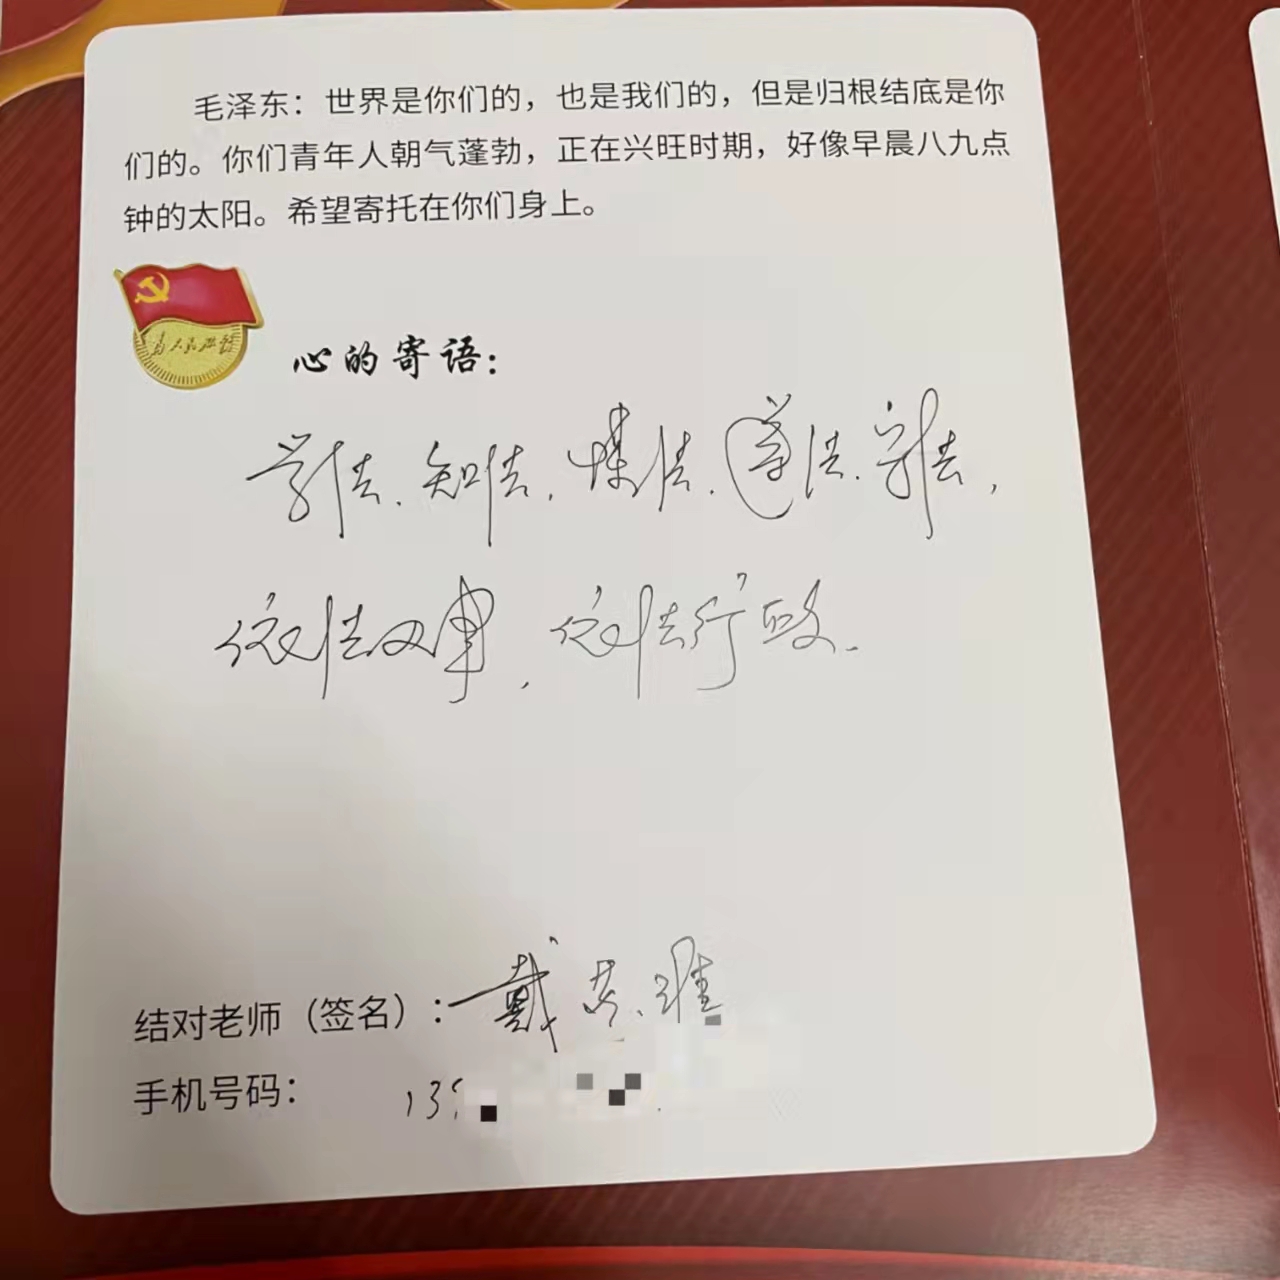 毛泽东：世界是你们的，也是我们的，但是归根结底是你
们的。你们青年人朝气蓬勃，正在兴旺时期，好像早晨八九点
钟的太阳。希望寄托在你们身上。
为人民服务
心的寄语：
学法、知法、懂法、遵法、守法，
依法办事，依法行政.
结对老师（签名）：戴
手机号码：139